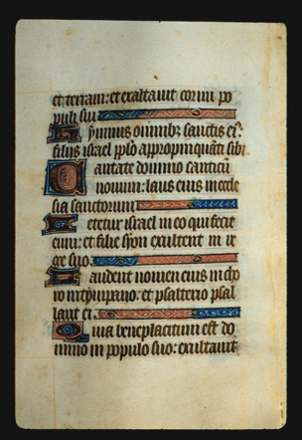 et terram: et exaltavit cornu po
puli sui
Hymnus omnibꝫ sanctis eiꝰ:
filiis israel pplo appropinquāti sibi
Cantate domino canticū
novum: laus eius in eccle
sia sanctorum
Letetur israel in eo qui fecit
eum: et filie syon exultent in re
ge suo
Laudent nomen eius in cho
ro in tympano: et psalterio psal
lant ei
Quia beneplacitum est do
mino in populo suo: exaltavit